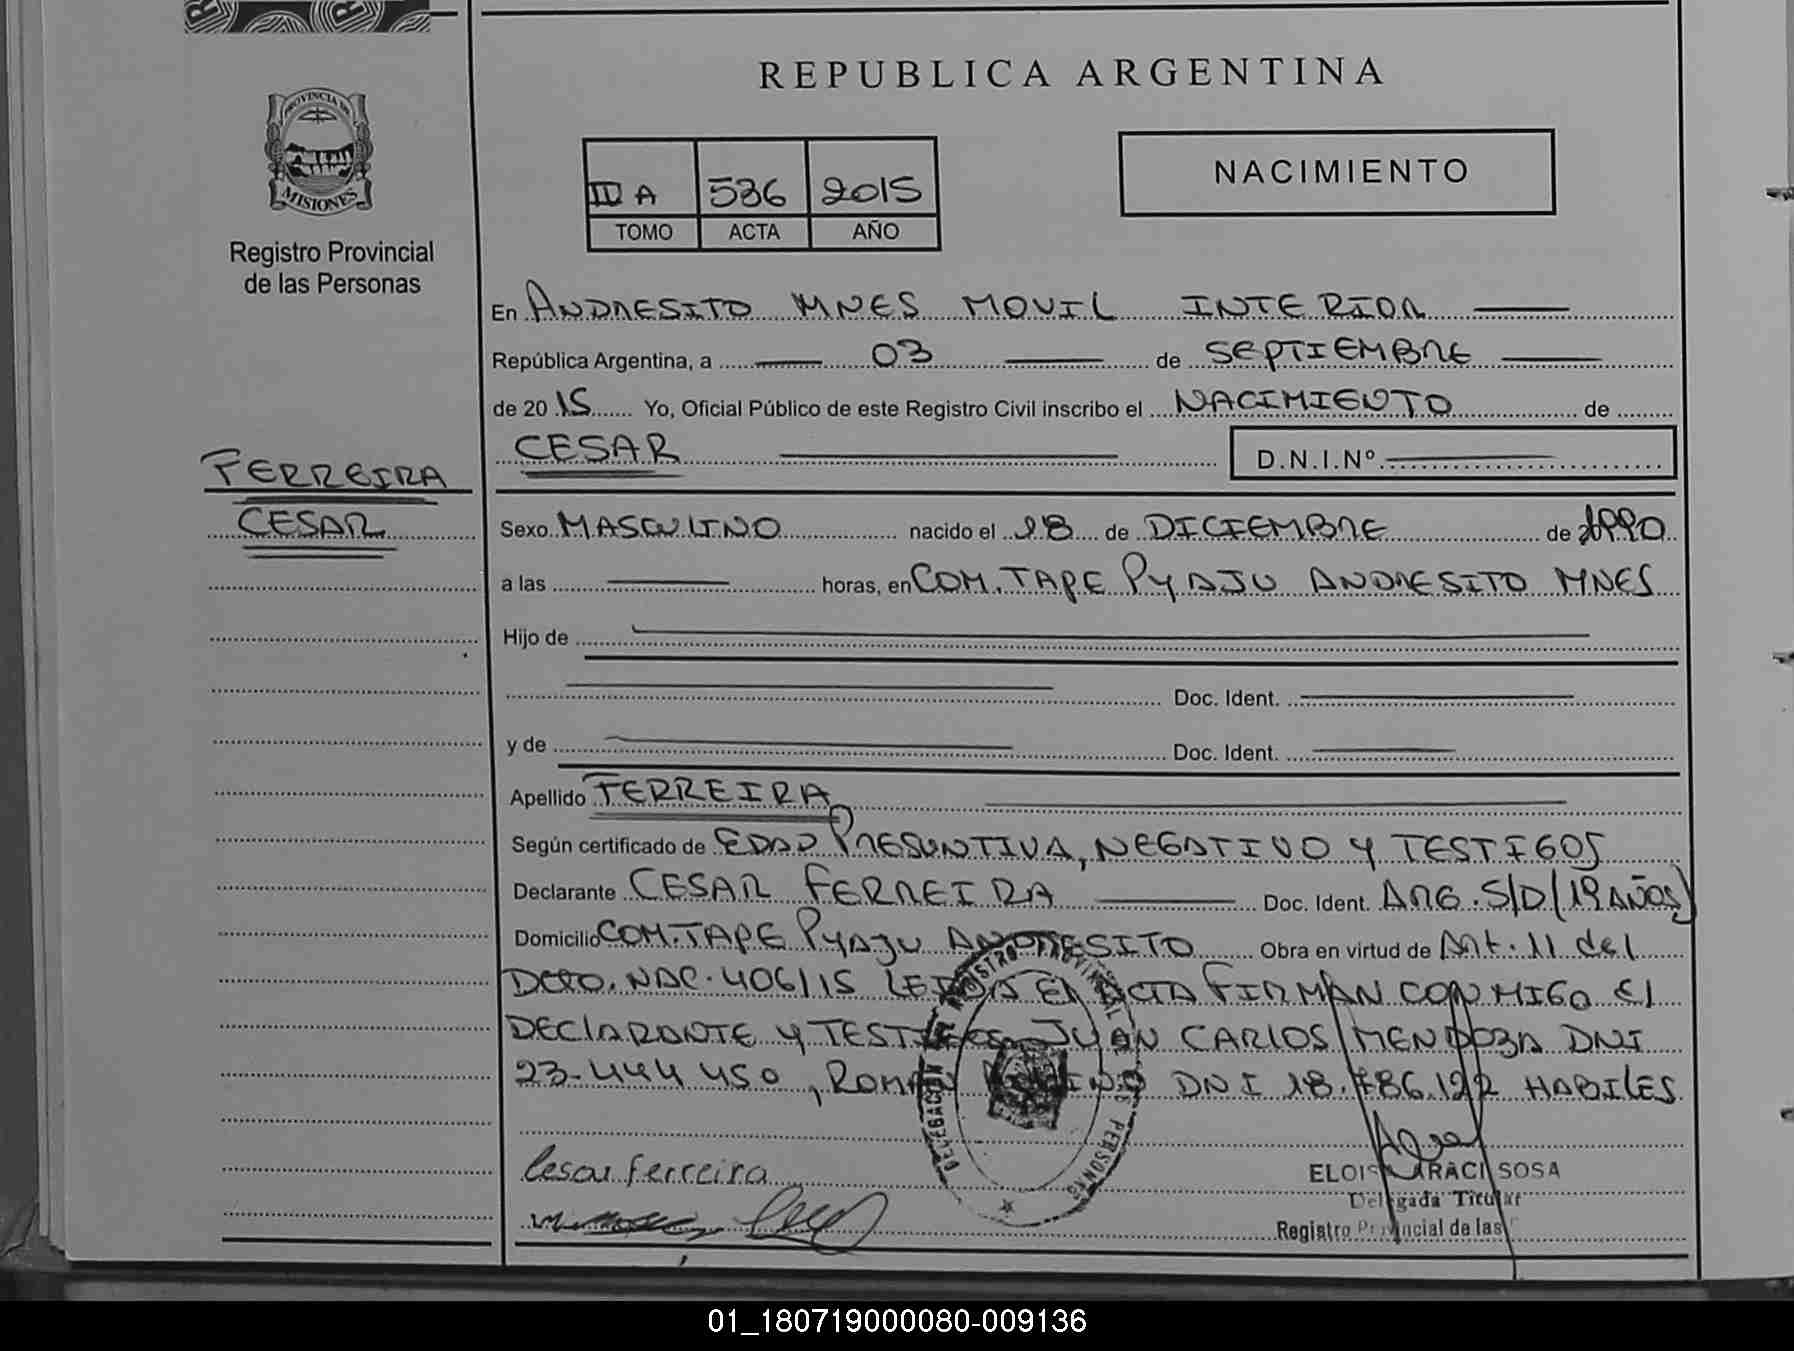 REPUBLICA ARGENTINA
PROVINCIA DE
MISIONES
Registro Provincial
de las Personas
II A 536 2015
TOMO ACTA AÑO
NACIMIENTO
En ANDRESITO MNES MOVIL INTERIOR
República Argentina, a 03 de SEPTIEMBRE
de 2015 Yo, Oficial Público de este Registro Civil inscribo el NACIMIENTO de
CESAR D.N.I.Nº
FERREIRA
CESAR
Sexo MASCULINO nacido el 18 de DICIEMBRE de 1990
a las horas, en COM. TAPE PYAJU ANDRESITO MNES
Hijo de
Doc. Ident.
y de Doc. Ident.
Apellido FERREIRA
Según certificado de EDAD PRESUNTIVA, NEGATIVO Y TESTIGOS
Declarante CESAR FERREIRA Doc. Ident. ARG. S/D (19 AÑOS)
Domicilio COM. TAPE PYAJU ANDRESITO Obra en virtud de Art. 11 del
DCTO. NAC. 406/15 LEIDA EL ACTA FIRMAN CONMIGO El
DEClARANTE Y TESTIGOS JUAN CARLOS MENDOZA DNI
23.444.450, ROMAN DNI 18.786.122 HABILES
DELEGACION REGISTRO PROVINCIAL PERSONAS
Cesar ferreira
ARACI SOSA
Delegada Titular
Registro Provincial de las
01_180719000080-009136